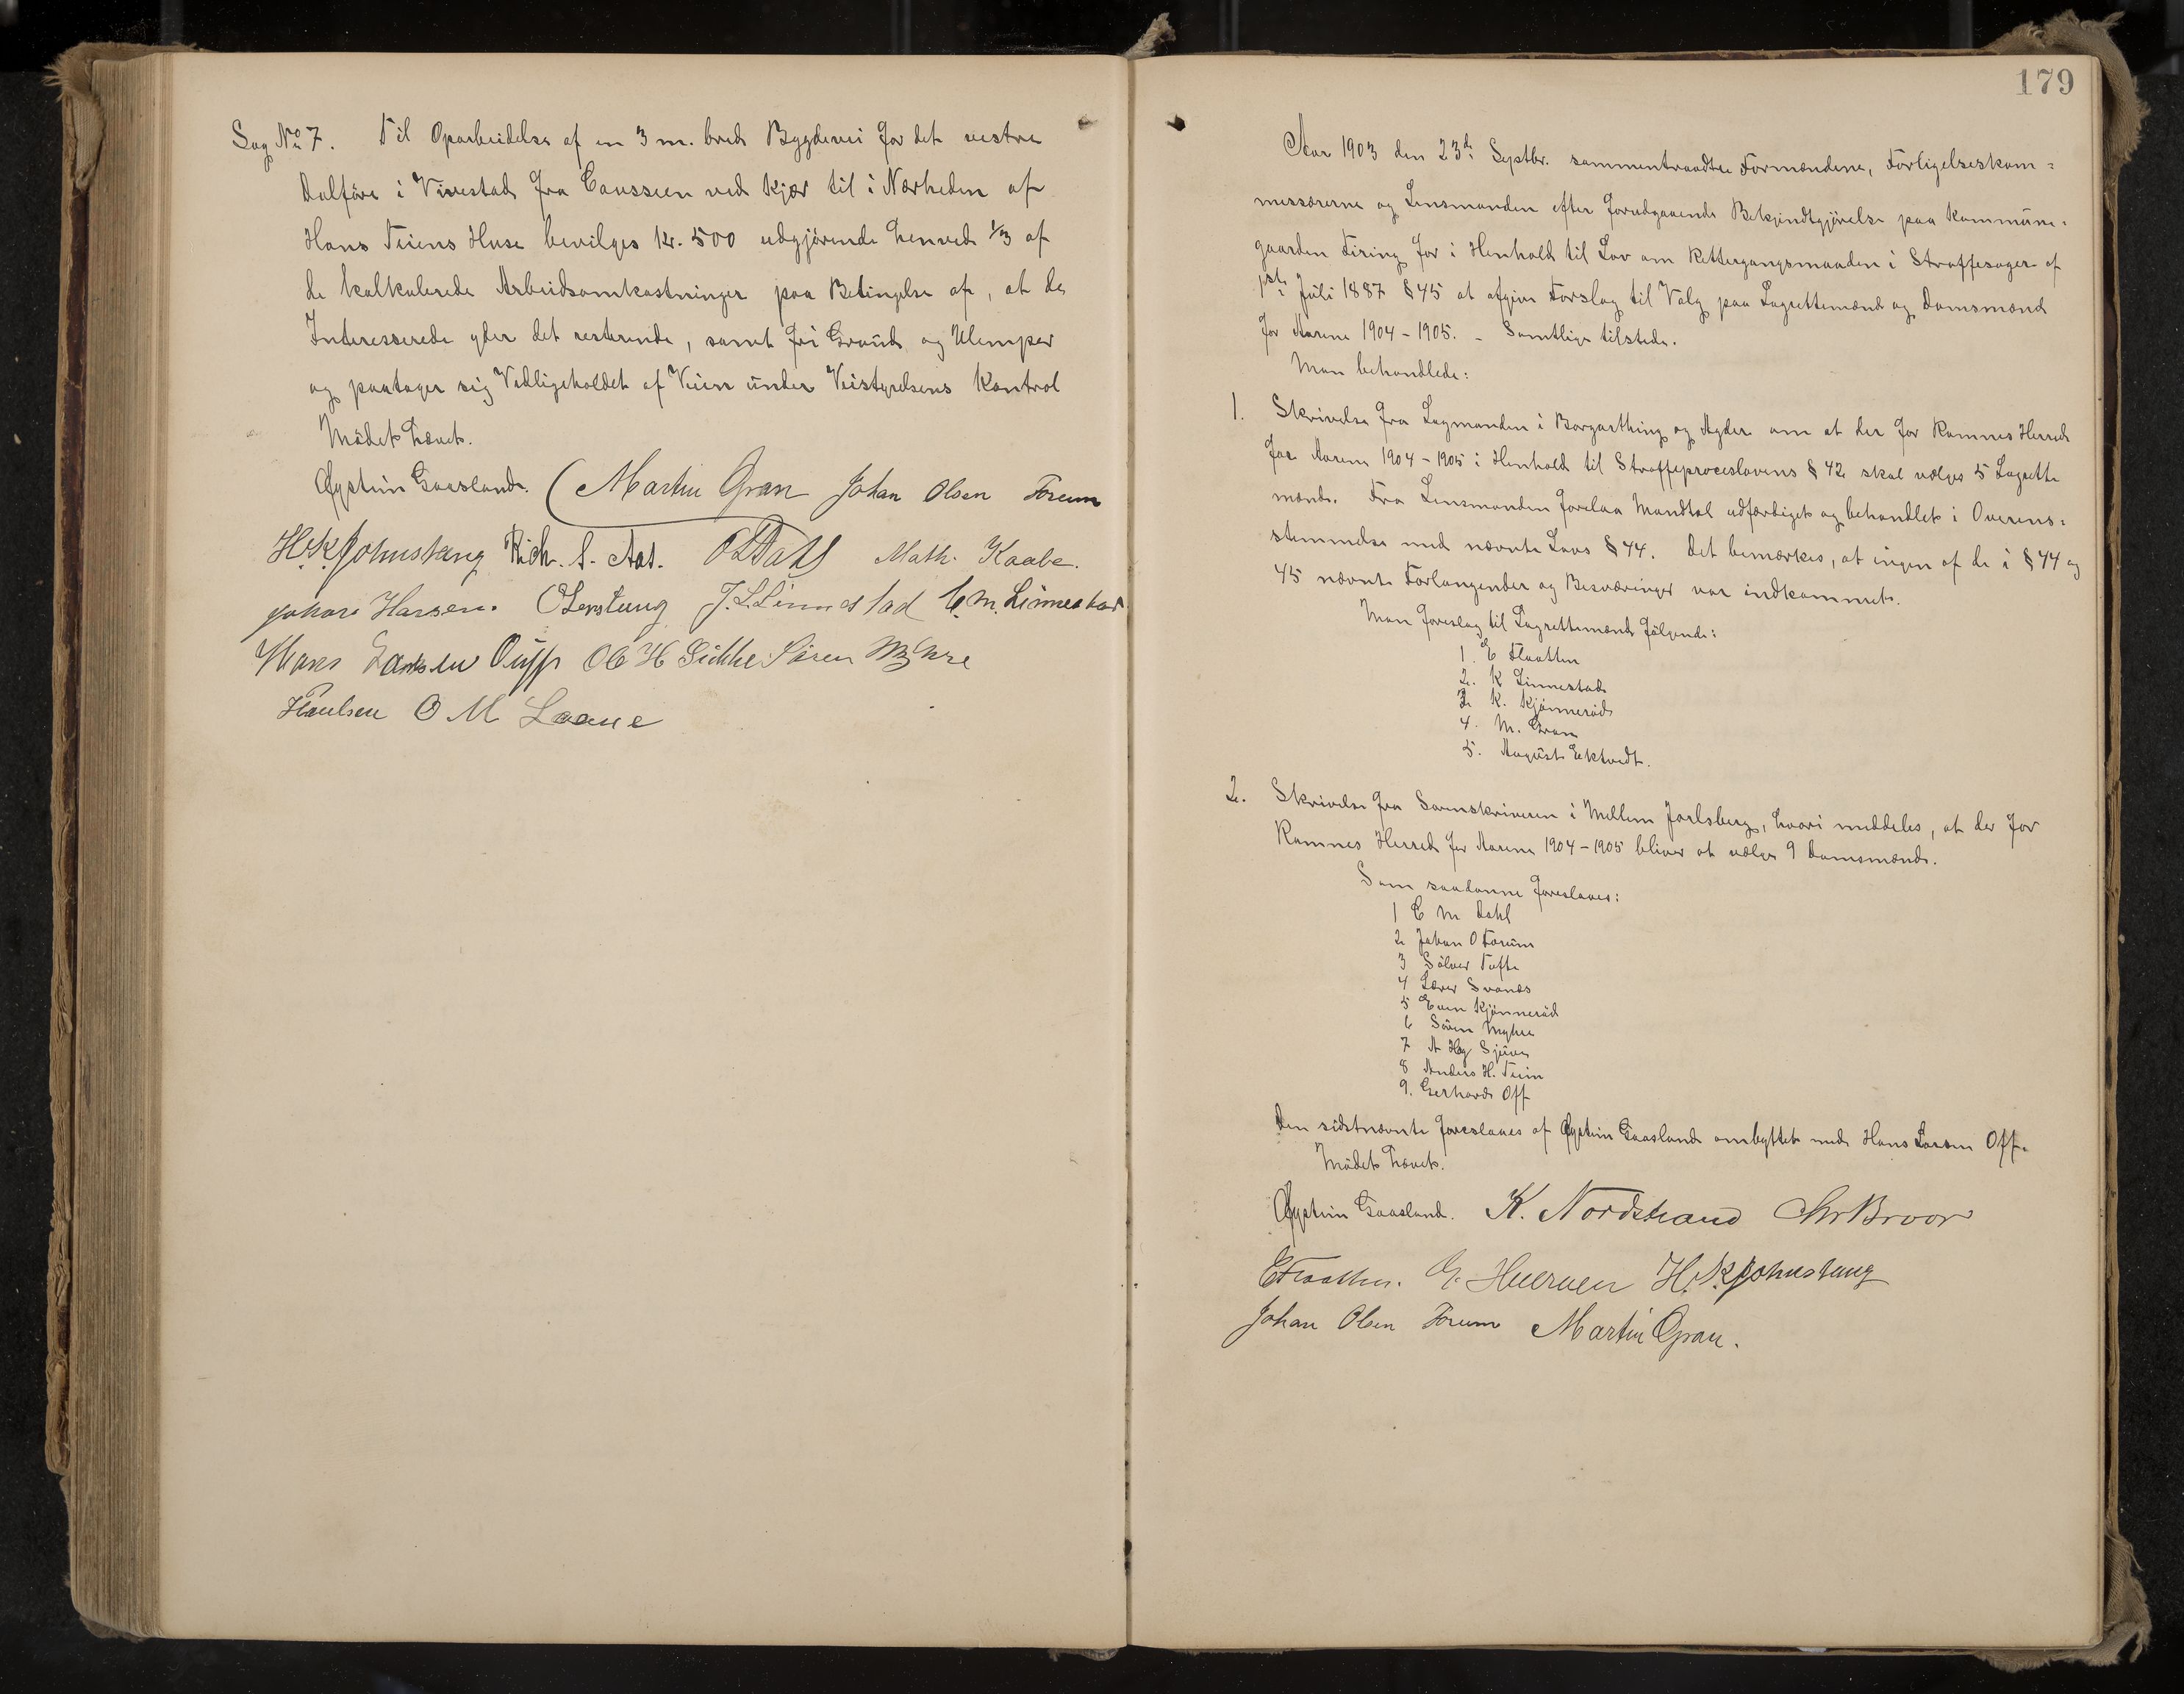 Sag No 7. Til Oparbeidelse af en 3 m. bred Bygdevei for det vestre
Dalføre i Vivestad fra Causseen ved Kjær til i Nærheden af
Hans Teiens Huse bevilges Kr. 500 udgjørende henved 1/3 af
de kalkulerede Arbeidsomkostninger paa Betingelse af, at de
Interesserede yder det resterende, samt fri Grund og Ulemper
og paatager sig Vedligeholdet af Veien under Veistyrelsens Kontrol
Mødet hævet.
Øystein Gaasland. Martin Gran Johan Olsen Forum
H. K. Johnstang Rich. S. Aas. O L Dahl Math. Kaabe.
Johan Hansen. O Lerstang J. L. Linnestad C. M. Linnestad
Hans Larsen Ouff Ole H Sukke Søren Myhre
Paulsen O M Laane
179
Aar 1903 den 23de Septbr. sammentraadte Formændene, Forligelseskom=
missærerne og Lensmanden efter forudgaaende Bekjendtgjørelse paa Kommune=
gaarden Firing for i Henhold til Lov om Rettergangsmaaden i Straffesager af
1ste Juli 1887 § 45 at afgive Forslag til Valg paa Lagrettemænd og Domsmænd
for Aarene 1904 - 1905. - Samtlige tilstede.
Man behandlede:
1. Skrivelse fra Lagmanden i Borgarthing og Agder om at der for Ramnes Herred
for Aarene 1904 - 1905 i Henhold til Straffeproceslovens § 42 skal vælges 5 Lagrette
mænd. Fra Lensmanden forelaa Mandtal udfærdiget og behandlet i Overens=
stemmelse med nævnte Lovs § 44. Det bemærkes, at ingen af de i § 44 og
45 nævnte Forlangender og Besværinger var indkommet.
Man foreslog til Lagrettemænd følgende:
1. E Flaatten
2. K Linnestad
3. K. Kjønnerød
4. M. Gran
5. August Ektvedt.
2. Skrivelse fra Sorenskriveren i Mellem Jarlsberg, hvori meddeles, at der for
Ramnes Herred for Aarene 1904 - 1905 bliver at vælge 9 Domsmænd.
Som saadanne foreslaaes:
1 C M Dahl
2 Johan O Forum
3 Sølver Tufte
4 Lærer Svanøs
5 Even Kjønnerød
6 Søren Myhre
7 A Hg Sjuve
8 Anders H. Teien
9. Gerhard Off
Den sidstnævnte foreslaaes af Øystein Gaasland ombyttet med Hans Larsen Off.
Mødet hævet.
Øystein Gaasland. K. Nordstrand Chr Broor
E Flaatten. G. Huerven H. K. Johnstang
Johan Olsen Forum Martin Gran.